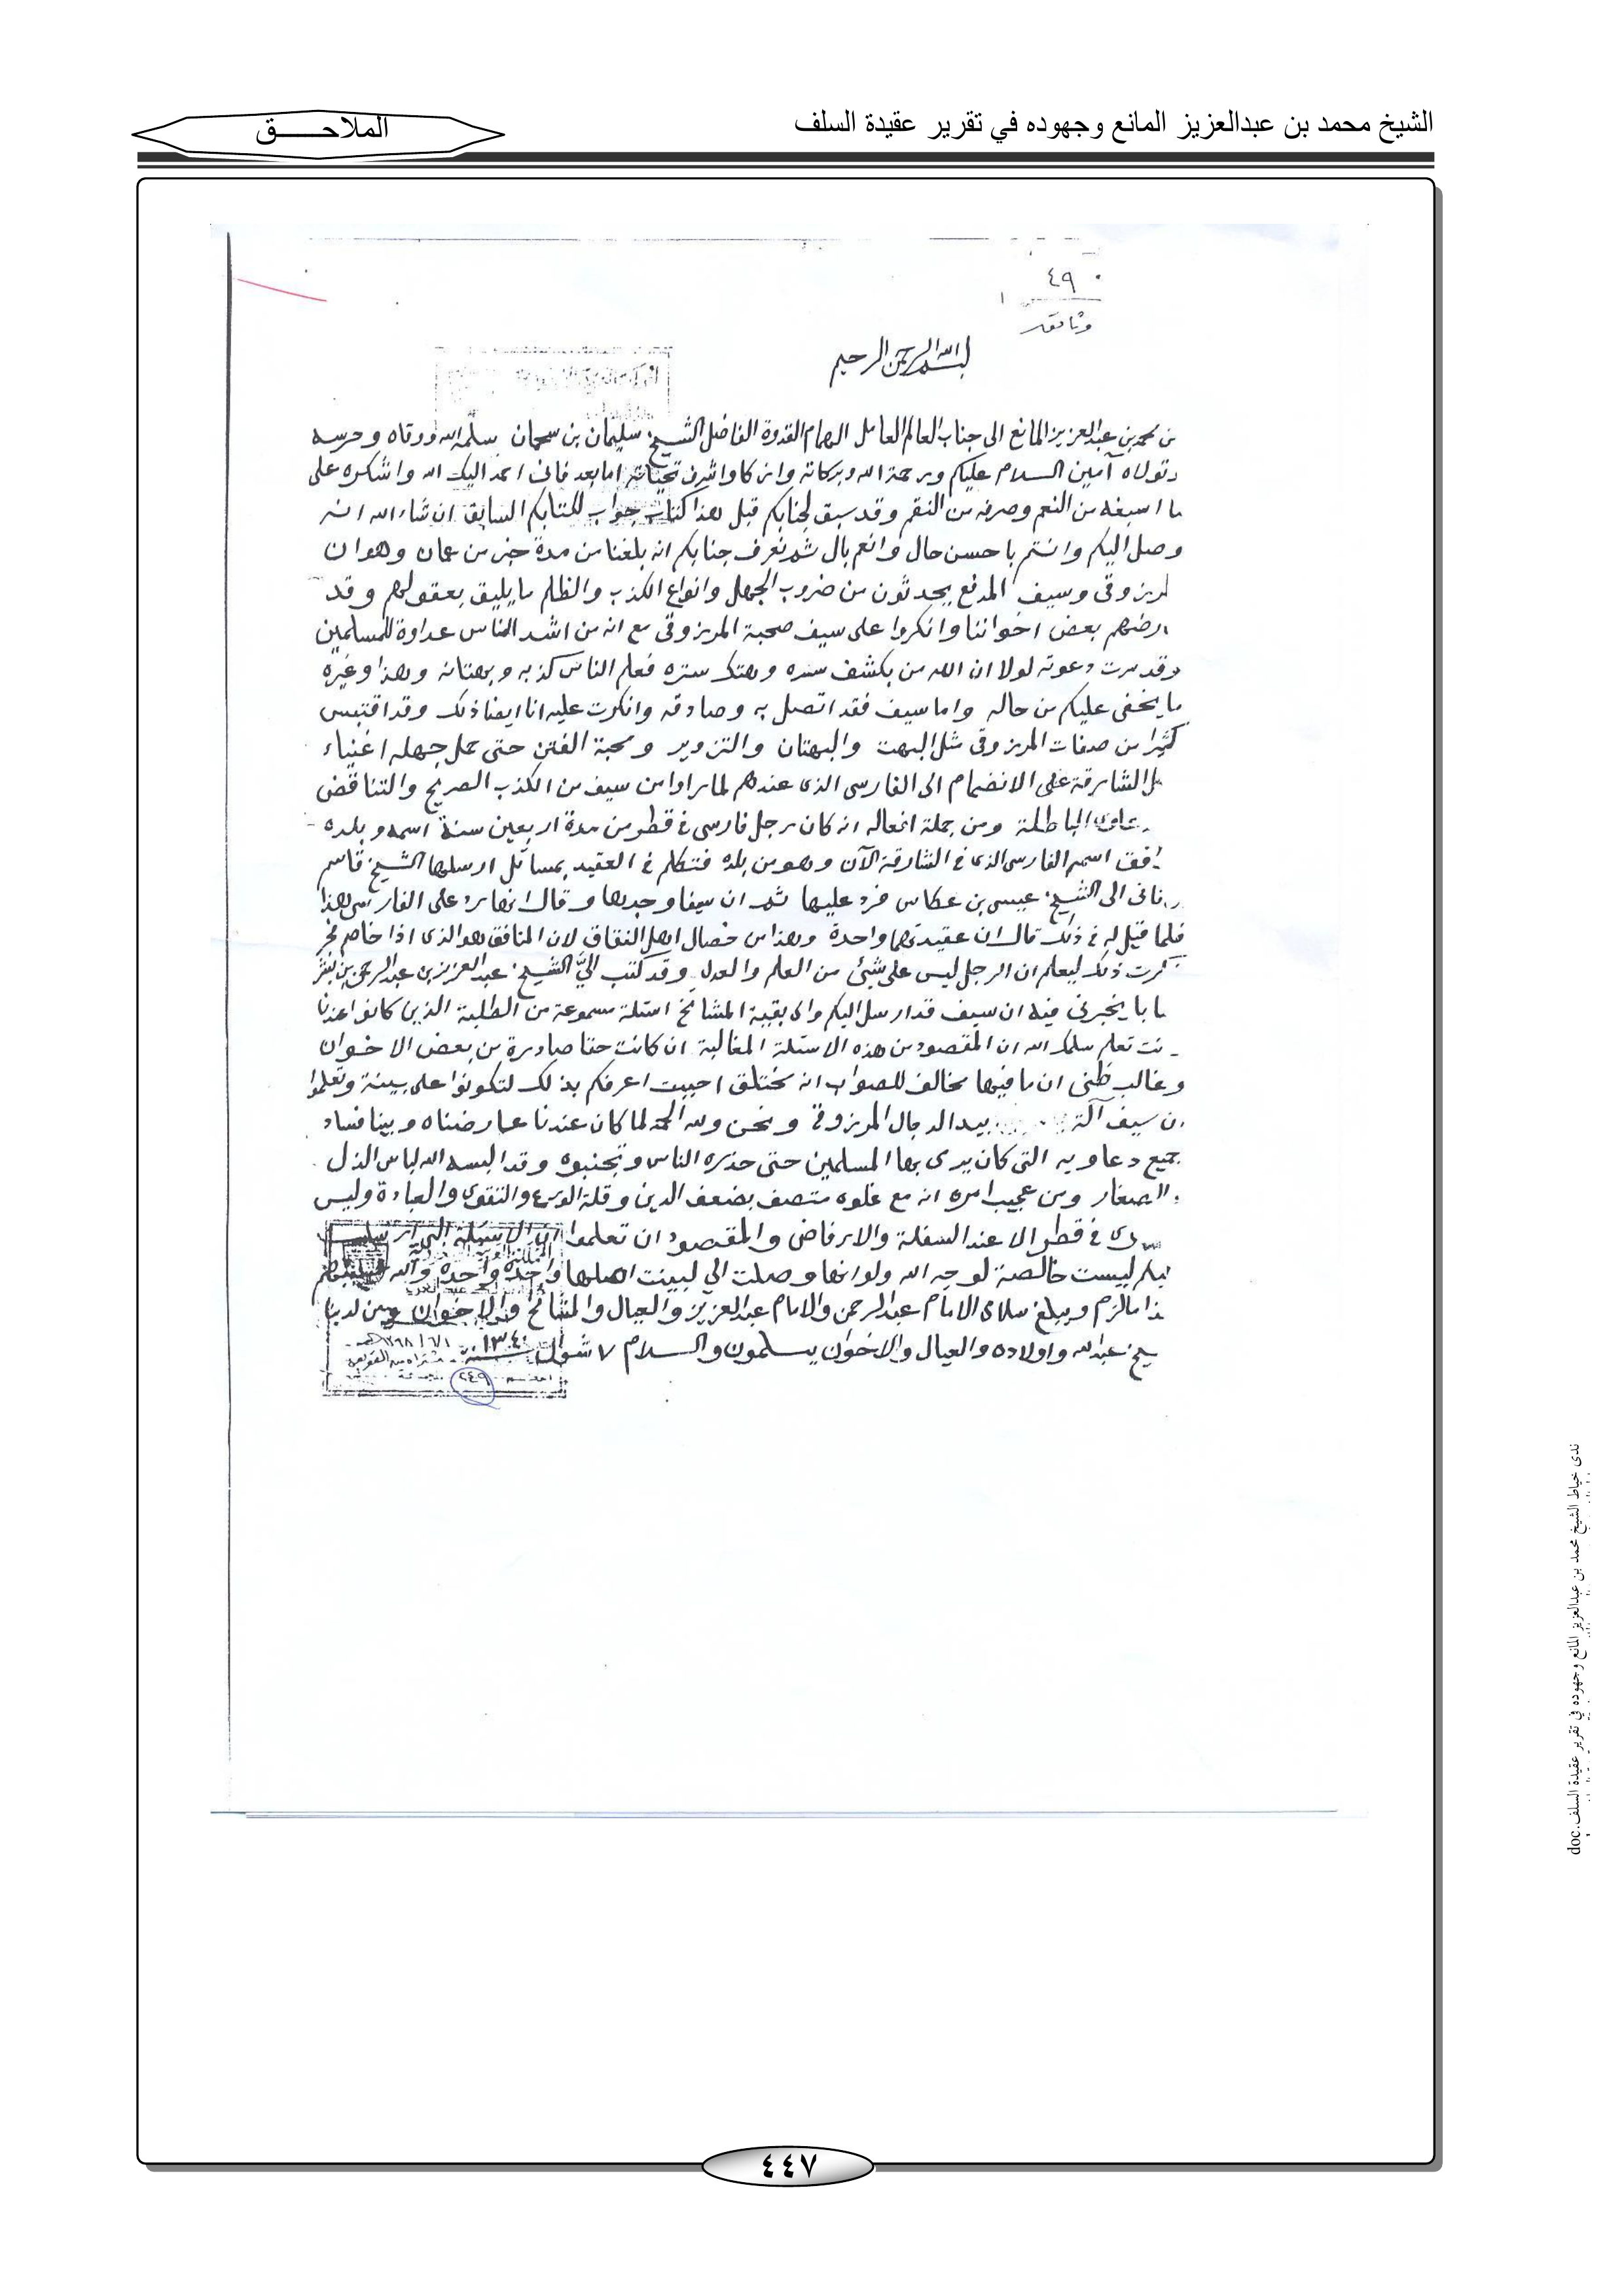 الشيخ محمد بن عبدالعزيز المانع وجهوده في تقرير عقيدة السلف
الملاحـــــق
٤٩
وثائق
بسم الله الرحمن الرحيم
من محمد بن عبدالعزيز المانع الى جناب العالم العامل الهمام القدوة الفاضل الشيخ سليمان بن سحمان سلمه الله ووقاه وحرسه
وتولاه آمين السلام عليكم ورحمة الله وبركاته وازكا واشرف تحياته اما بعد فاني احمد اليك الله واشكره على
ما اسبغه من النعم وصرفه من النقم وقد سبق لجنابكم قبل هذا كتاب جواب لكتابكم السابق ان شاء الله انه
وصل اليكم وانتم باحسن حال وانعم بال ثم نعرف جنابكم انه بلغنا من مدة خبر من عمان وهو ان
المرزوقي وسيف المدفع يحدثون من ضروب الجهل وانواع الكذب والظلم ما يليق بعقولهم وقد
بعض اخواننا وانكروا على سيف صحبة المرزوقي مع انه من اشد الناس عداوة للمسلمين
وقد سرت دعوته لولا ان الله من بكشف سره وهتك ستره فعلم الناس كذبه وبهتانه وهذا وغيره
ما يخفى عليكم من حاله واما سيف فقد اتصل به وصادقه وانكرت عليه انا ايضا ذلك وقد اقتبس
كثيرا من صفات المرزوقي مثل البهت والبهتان والتزوير ومحبة الفتن حتى حمل جهله اغنياء
الشارقة على الانضمام الى الفارسي الذي عندهم لما راوا من سيف من الكذب الصريح والتناقض
الباطلة ومن جملة افعاله انه كان رجل فارسي في قطر من مدة اربعين سنة اسمه وبلده
اسم الفارسي الذي في الشارقة الآن وهو من بلده فتكلم في العقيد بمسائل ارسلها الشيخ قاسم
الى الشيخ عيسى بن عكاس فرد عليها ثم ان سيفا وجدها وقال انها رد على الفارسي هذا
فلما قيل له في ذلك قال ان عقيدتهما واحدة وهذا من خصال اهل النفاق لان المنافق هو الذي اذا خاصم فجر
ذكرت ذلك ليعلم ان الرجل ليس على شيئ من العلم والعدل وقد كتب اليّ الشيخ عبدالعزيز بن عبدالرحمن بن بشر
يخبرني فيه ان سيف قد ارسل اليكم والى بقية المشائخ اسئلة مسموعة من الطلبة الذين كانوا عندنا
تعلم سلمك الله ان المقصود من هذه الاسئلة المغالبة ان كانت حقا صادرة من بعض الاخوان
وغالب ظني ان ما فيها مخالف للصواب انه مختلق احببت اعرفكم بذلك لتكونوا على بينة وتعلموا
ان سيف آلة بيد الدجال المرزوقي ونحن ولله الحمد لما كان عندنا عارضناه وبينا فساد
جميع دعاويه التي كان يرى بها المسلمين حتى حذره الناس وتجنبوه وقد البسه الله لباس الذل
والصغار ومن عجيب امره انه مع غلوه متصف بضعف الدين وقلة الورع والتقوى والعبادة وليس
في قطر الا عند السفلة والارفاض والمقصود ان تعلموا ان الاسئلة التي ارسلت
اليكم ليست خالصة لوجه الله ولو انها وصلت الي لبينت اصلها واحدة واحدة والله
هذا ما لزم ويبلغ سلامي الامام عبدالرحمن والامام عبدالعزيز والعيال والمشائخ والاخوان ومن لدينا
الشيخ عبدالله واولاده والعيال والاخوان يسلمون والسلام ٧ شوال سنة ١٣٤٠
٢٤٩
٤٤٧